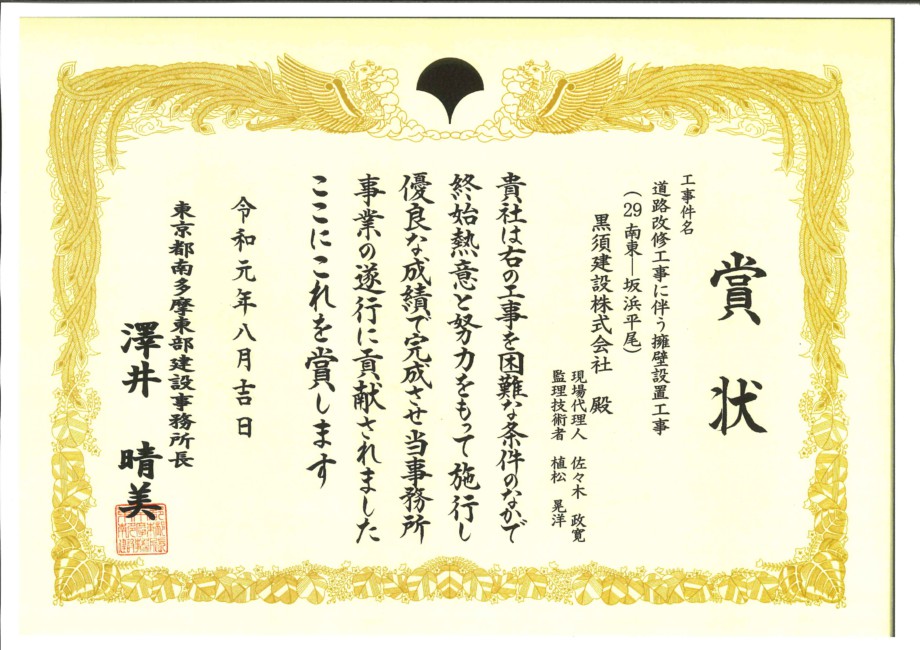 賞状
工事件名
道路改修工事に伴う擁壁設置工事
（29南東―坂浜平尾）
黒須建設株式会社 殿
現場代理人 佐々木 政寛
監理技術者 植松 晃洋
貴社は右の工事を困難な条件のなかで
終始熱意と努力をもって施行し
優良な成績で完成させ当事務所
事業の遂行に貢献されました
ここにこれを賞します
令和元年八月吉日
東京都南多摩東部建設事務所長
澤井 晴美